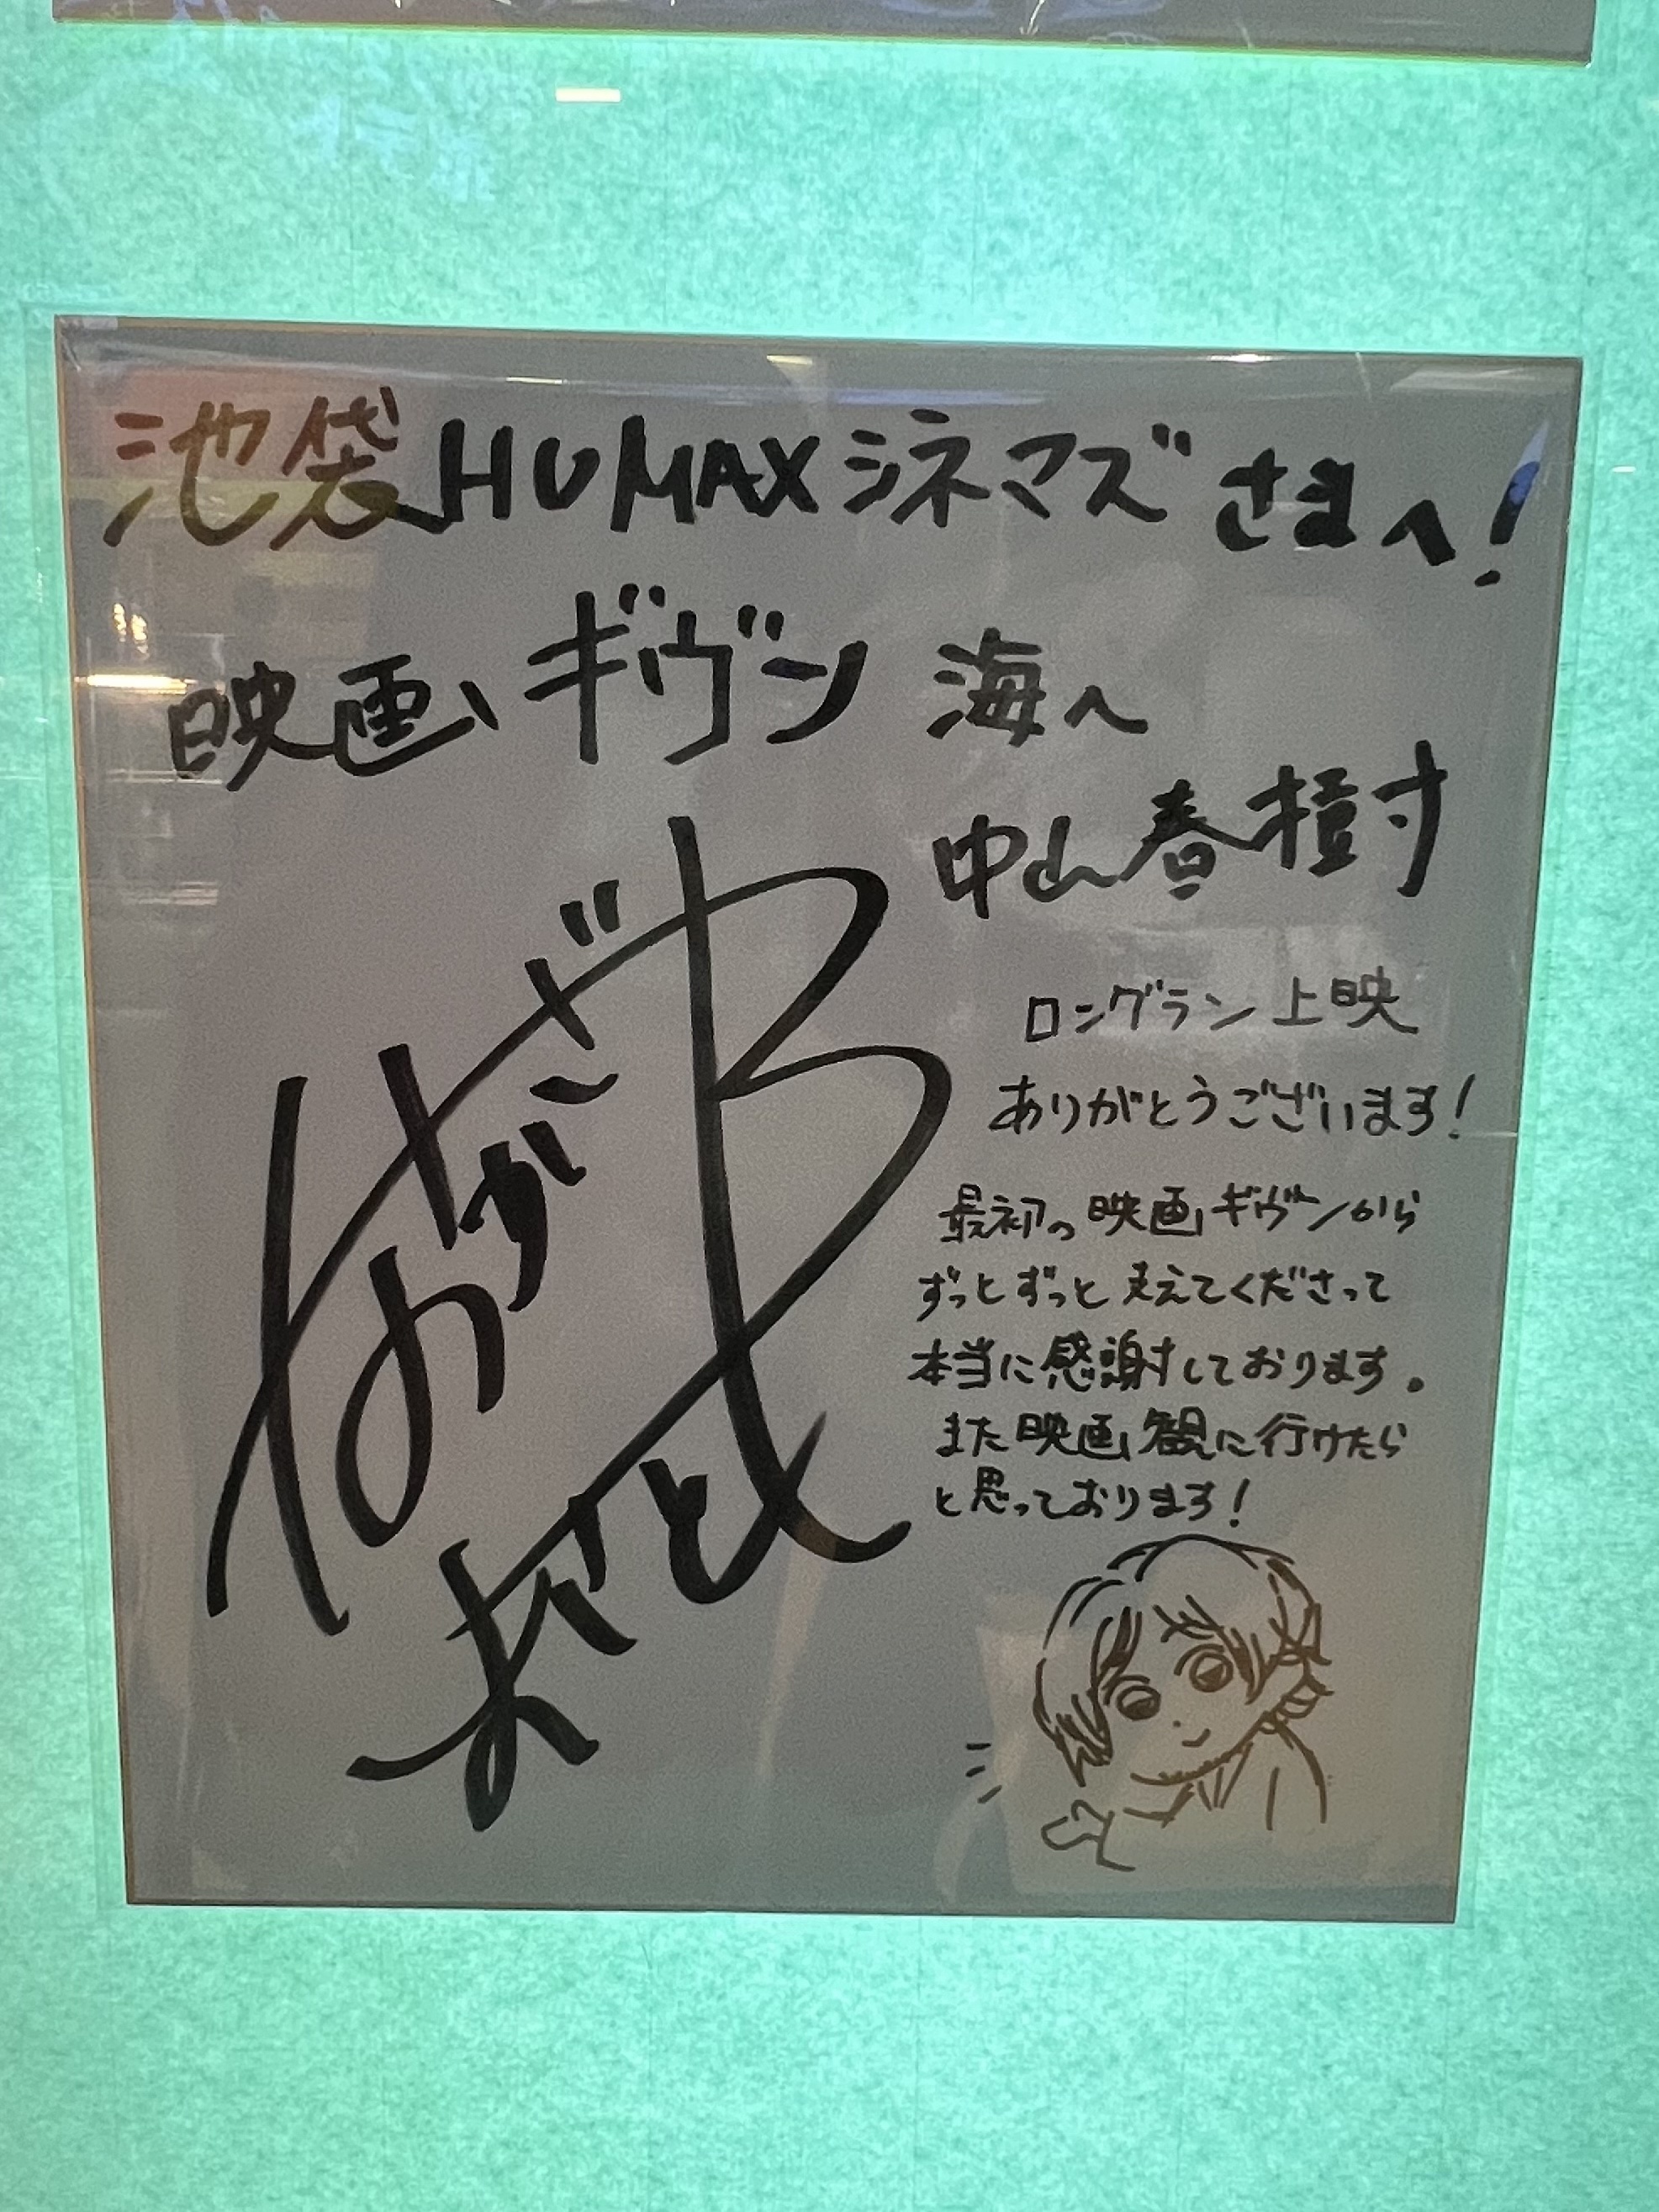 池袋HUMAXシネマズさまへ!
映画 ギヴン 海へ
中山春樹
ロングラン上映
ありがとうございます!
最初の映画ギヴンから
ずっとずっと支えてくださって
本当に感謝しております。
また映画観に行けたら
と思っております!